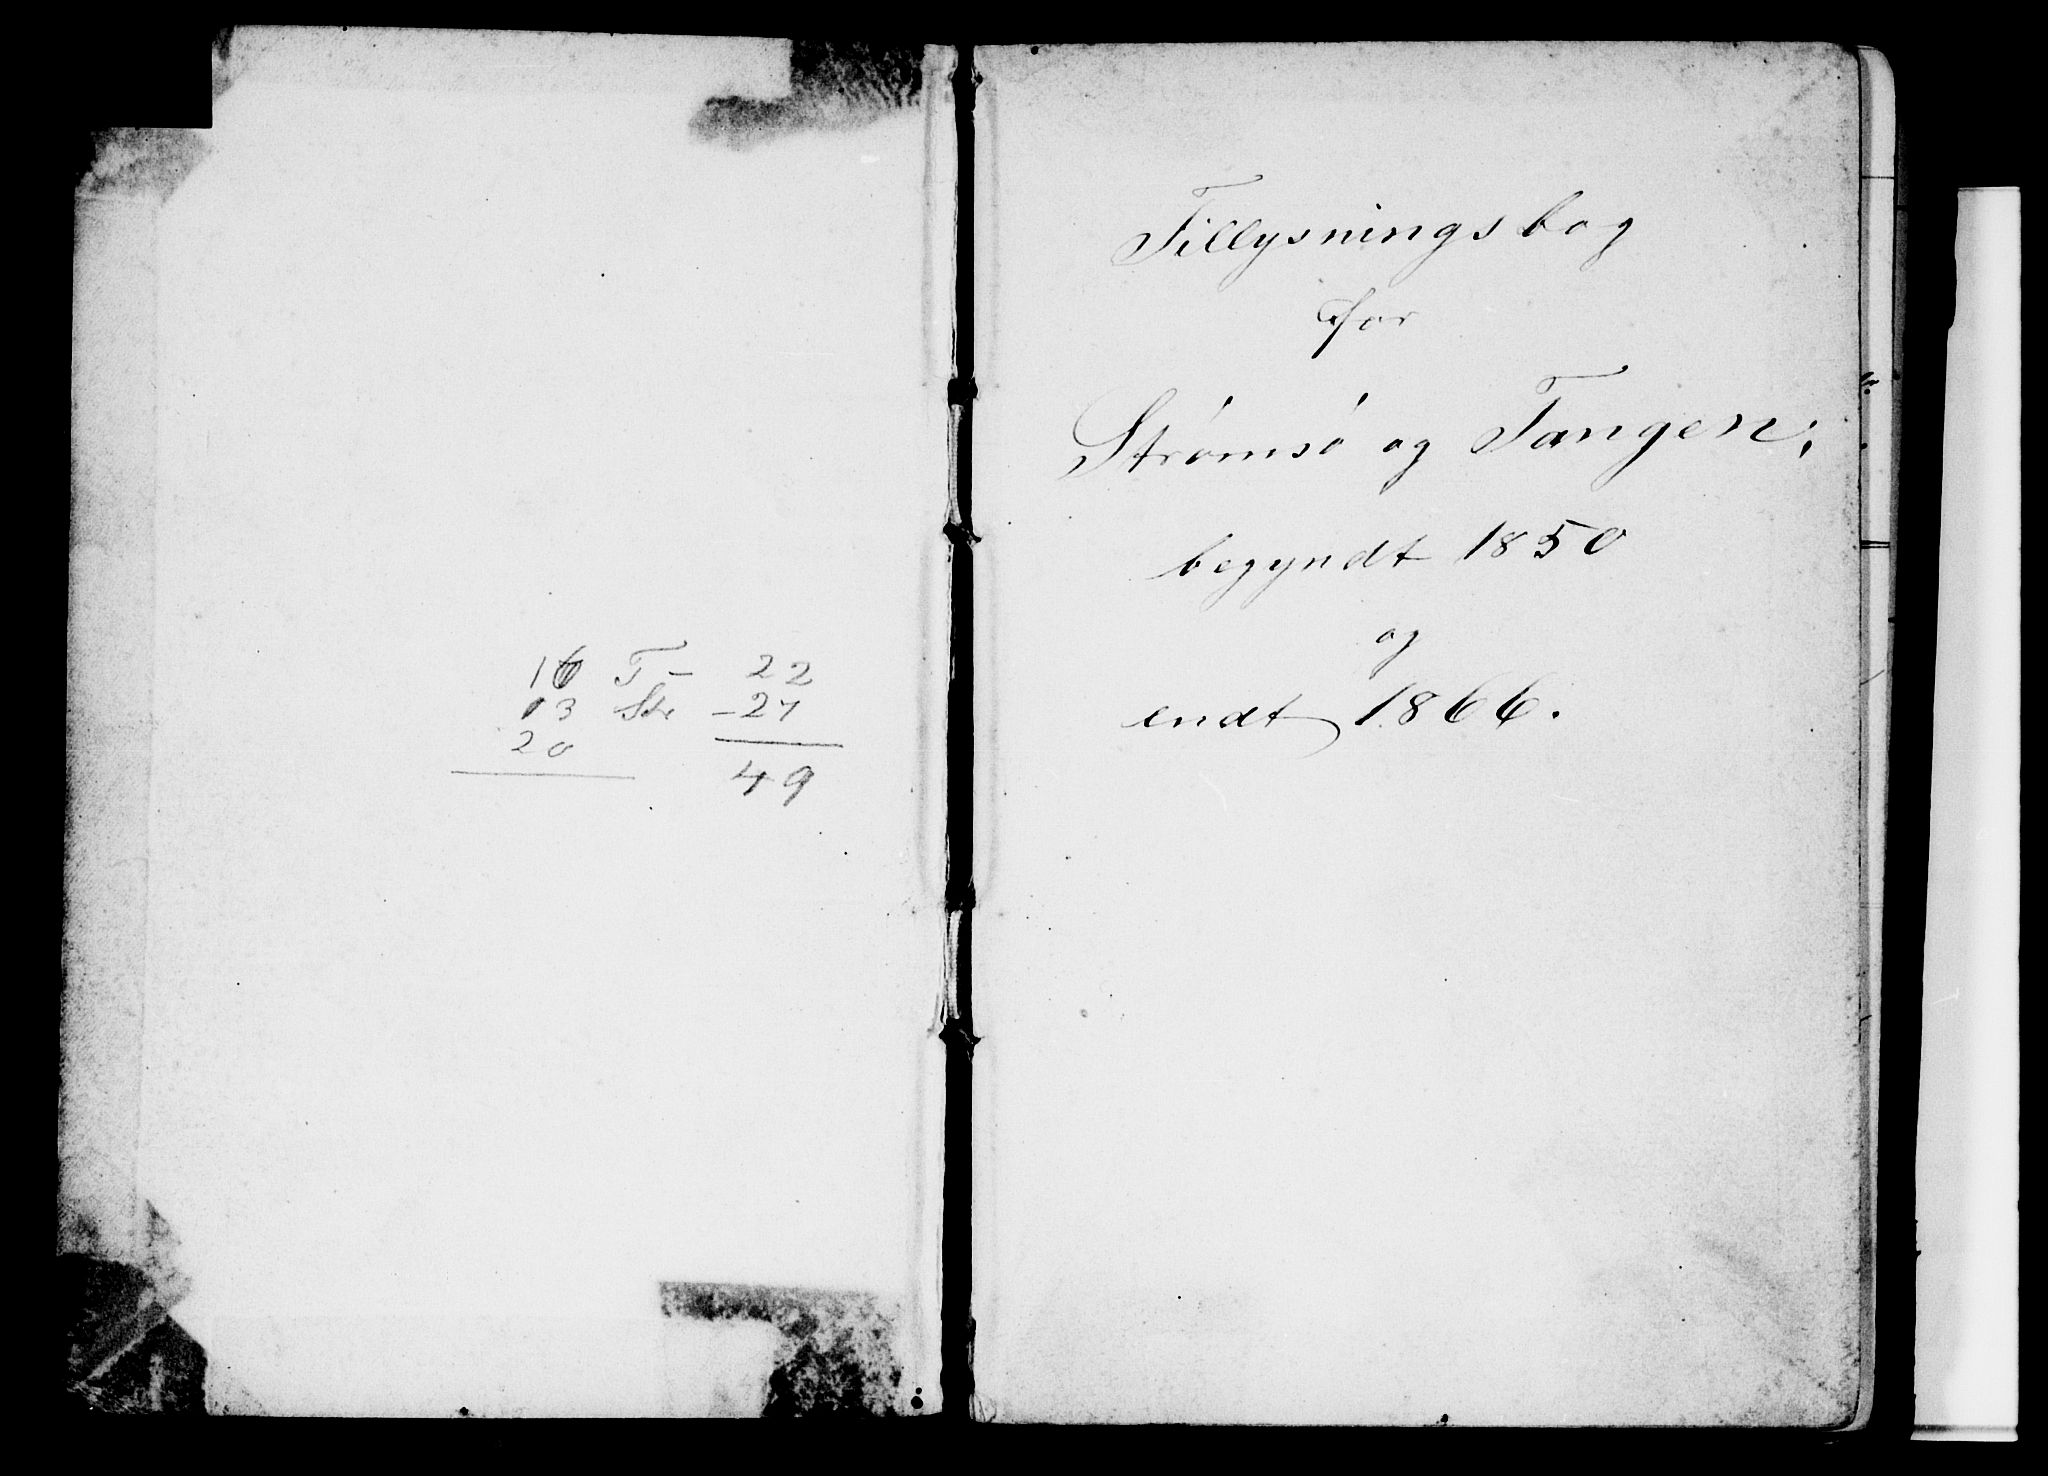 16 T - 22
13 Str - 27
20
49
Tillysningsbog
for
Strømsø og Tangen,
begyndt 1850
og
endt 1866.